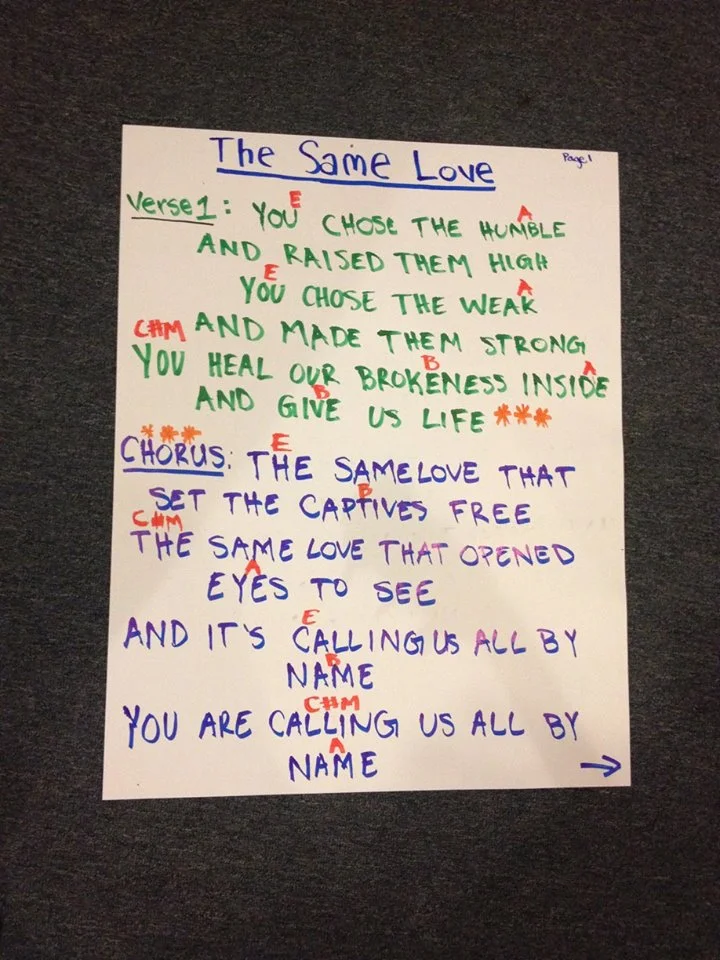 The Same Love Page 1
E A
Verse 1: YOU CHOSE THE HUMBLE
AND RAISED THEM HIGH
E A
YOU CHOSE THE WEAK
C#M AND MADE THEM STRONG
B A
YOU HEAL OUR BROKENESS INSIDE
B
AND GIVE US LIFE ***
****
E
CHORUS: THE SAME LOVE THAT
B
SET THE CAPTIVES FREE
C#M
THE SAME LOVE THAT OPENED
A
EYES TO SEE
E
AND IT'S CALLING US ALL BY
B
NAME
C#M
YOU ARE CALLING US ALL BY
A
NAME →